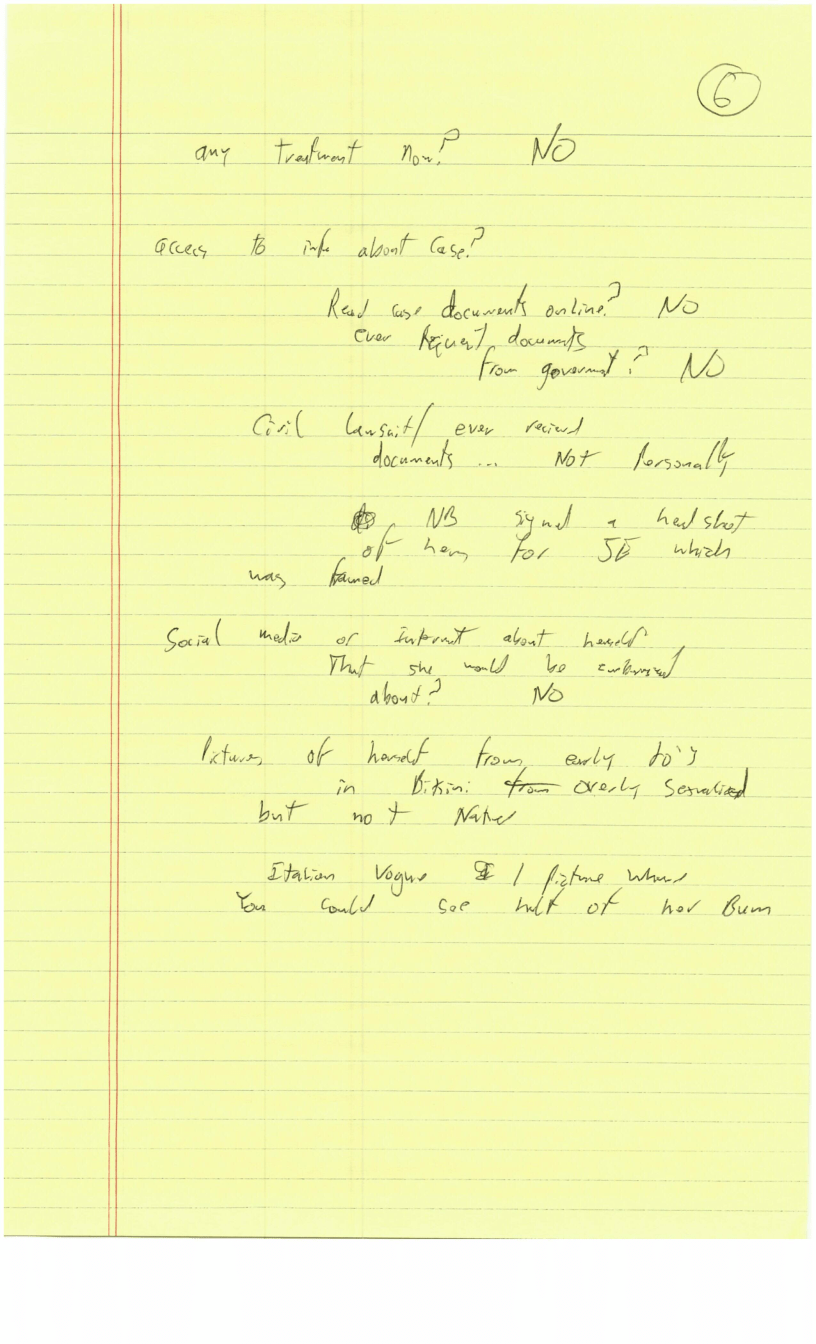 6
any treatment now? NO
access to info about case?
Read case documents online? NO
ever request documents
from government? NO
Civil lawsuit/ ever recieved
documents ... Not Personally
NB signed a headshot
of hers for JE which
was framed
Social media or Internet about herself
That she would be embarrassed
about? NO
Pictures of herself from early 20's
in Bikini from overly sexualized
but not Naked
Italian Vogue 1 picture where
You could see half of her Bum